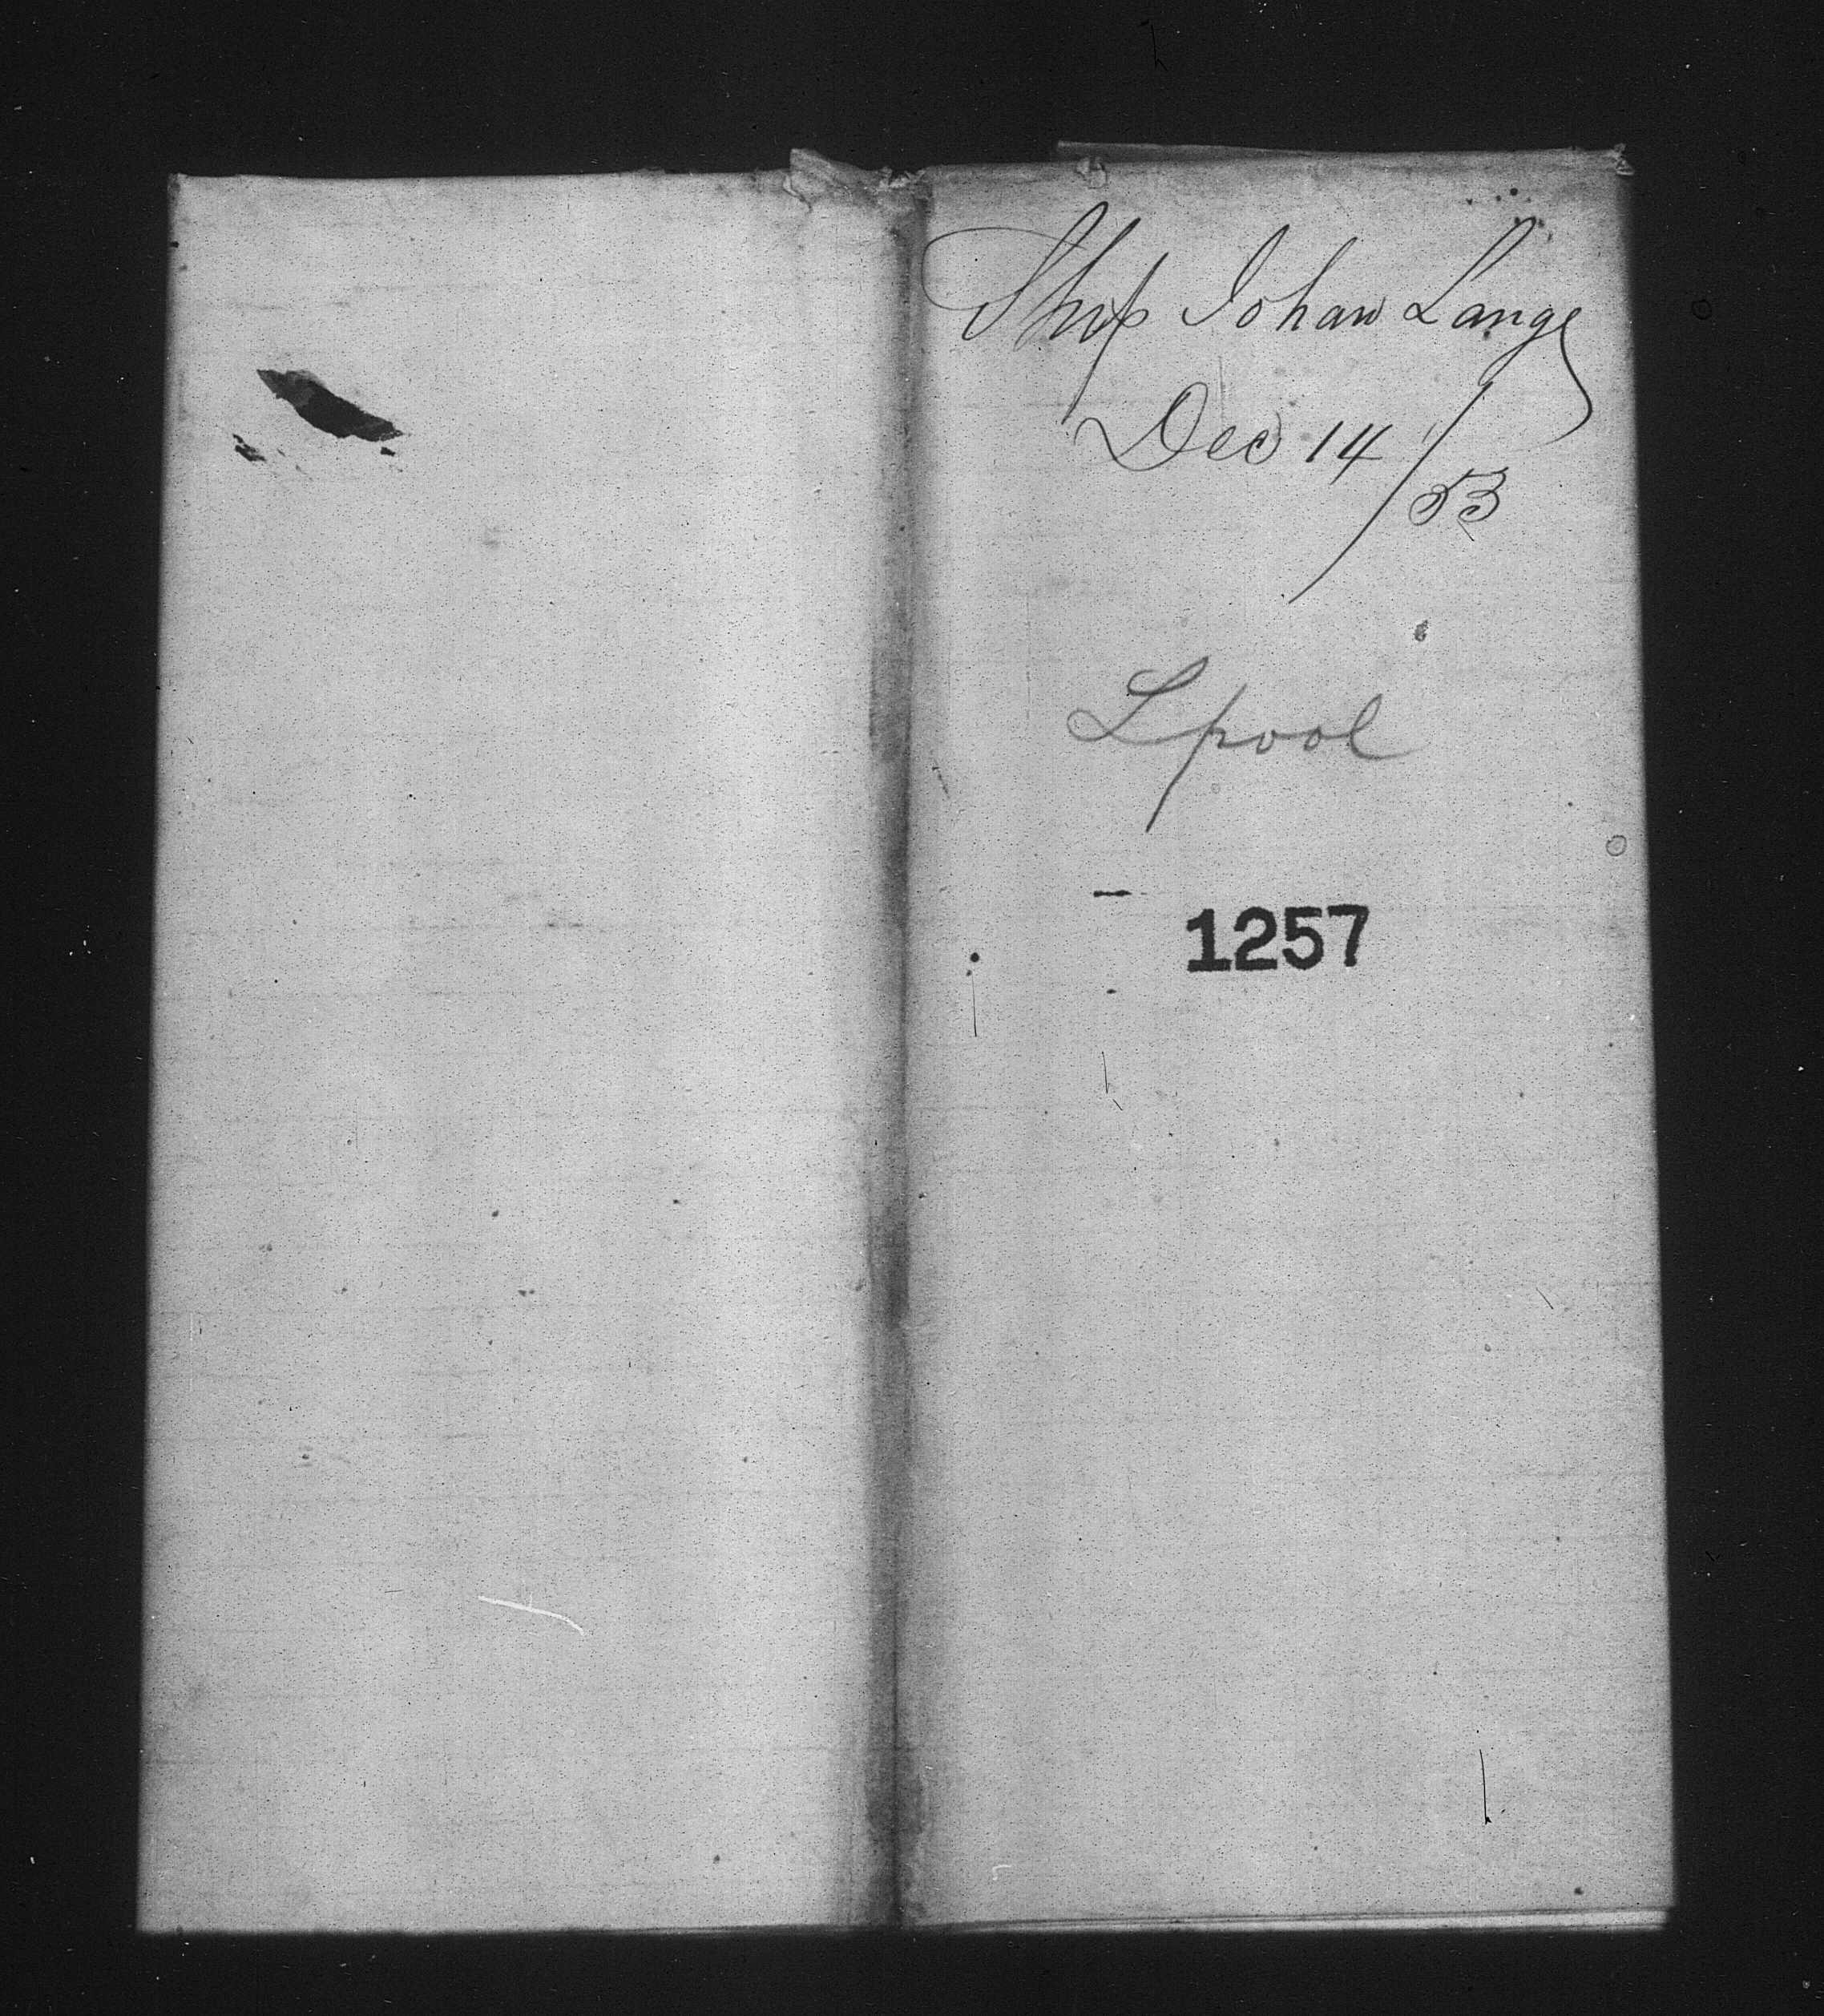 Ship Johan Lange
Dec 14/53
Lpool
1257